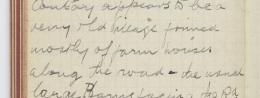 Contay appears to be a
very old village formed
mostly of farm houses
along the road - the usual
large Barns facing the Rd